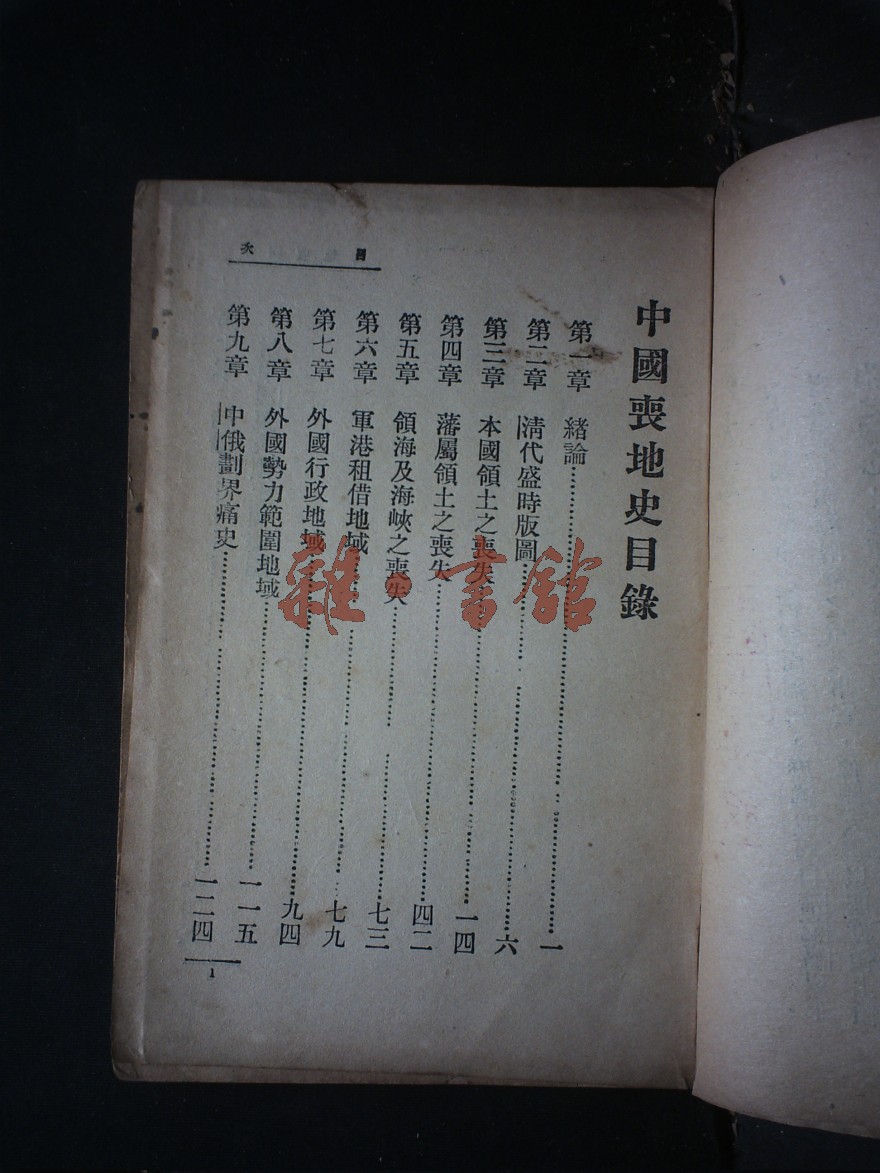 中國喪地史目錄
第一章 緒論……一
第二章 清代盛時版圖……六
第三章 本國領土之喪失……一四
第四章 藩屬領土之喪失……四二
第五章 領海及海峽之喪失……七三
第六章 軍港租借地域……七九
第七章 外國行政地域……九四
第八章 外國勢力範圍地域……一一五
第九章 中俄劃界痛史……一二四
目次
1
雜·書館